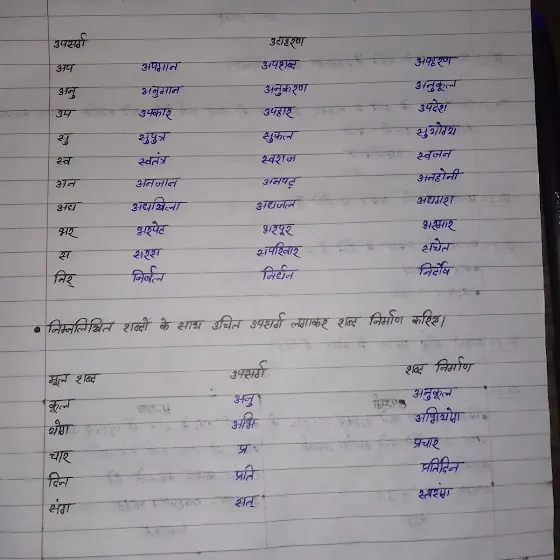 उपसर्ग उदाहरण
अप अपमान अपशब्द अपहरण
अनु अनुमान अनुकरण अनुकूल
उप उपकार उपहार उपदेश
सु सुपुत्र सुफल सुयोग्य
स्व स्वतंत्र स्वराज स्वजन
अन अनजान अनपढ़ अनहोनी
अध अधखिला अधजल अधमरा
भर भरपेट भरपूर भरमार
स सरस सपरिवार सचेत
निर् निर्बल निर्धन निर्दोष
• निम्नलिखित शब्दों के साथ उचित उपसर्ग लगाकर शब्द निर्माण करिए।
मूल शब्द उपसर्ग शब्द निर्माण
कूल अनु अनुकूल
योग अभि अभियोग
चार प्र प्रचार
दिन प्रति प्रतिदिन
संग सत्